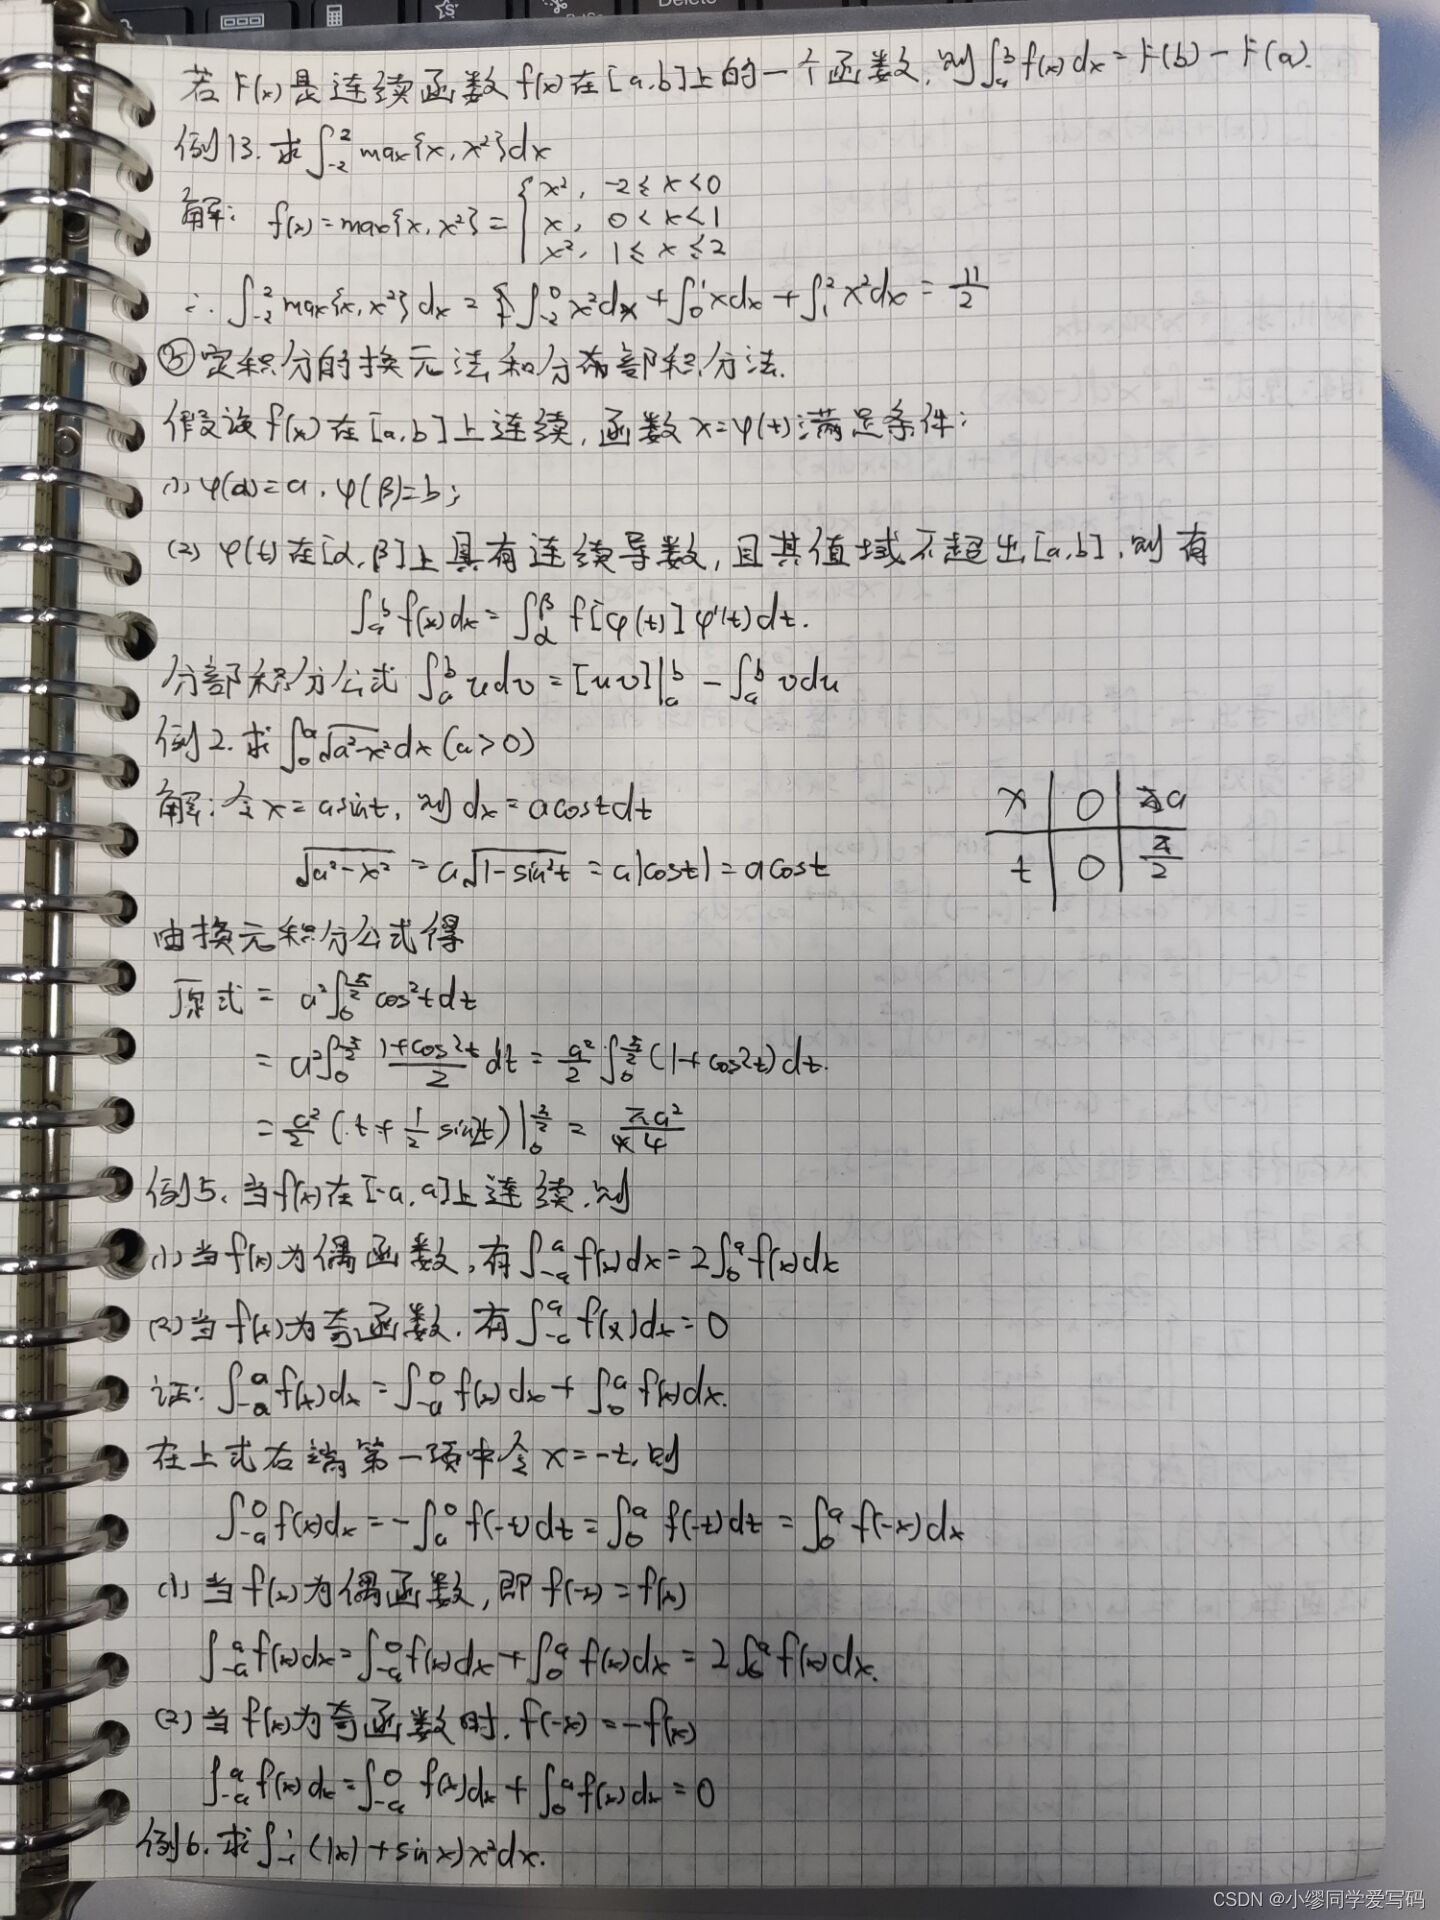 Delete
若F(x)是连续函数f(x)在[a,b]上的一个函数,则∫_a^b f(x)dx=F(b)-F(a).
例13.求∫_{-2}^2 max{x,x²}dx
解: f(x)=max{x,x²}={x², -2≤x<0
x, 0<x<1
x², 1≤x≤2
∴∫_{-2}^2 max{x,x²}dx=∫_{-2}^0 x²dx+∫_0^1 xdx+∫_1^2 x²dx=11/2
⑤定积分的换元法和分部积分法.
假设f(x)在[a,b]上连续,函数x=φ(t)满足条件:
(1)φ(α)=a,φ(β)=b;
(2)φ(t)在[α,β]上具有连续导数,且其值域不超出[a,b],则有
∫_a^b f(x)dx=∫_α^β f[φ(t)]φ'(t)dt.
分部积分公式∫_a^b udv=[uv]|_a^b-∫_a^b vdu
例2.求∫_0^a √(a²-x²)dx(a>0)
解:令x=asint,则dx=acostdt
√(a²-x²)=a√(1-sin²t)=a|cost|=acost
x 0 a
t 0 π/2
由换元积分公式得
原式=a²∫_0^{π/2} cos²tdt
=a²∫_0^{π/2} (1+cos2t)/2 dt=a²/2 ∫_0^{π/2}(1+cos2t)dt.
=a²/2(t+1/2 sin2t)|_0^{π/2}=πa²/4
例5.当f(x)在[-a,a]上连续,则
(1)当f(x)为偶函数,有∫_{-a}^a f(x)dx=2∫_0^a f(x)dx
(2)当f(x)为奇函数,有∫_{-a}^a f(x)dx=0
证:∫_{-a}^a f(x)dx=∫_{-a}^0 f(x)dx+∫_0^a f(x)dx.
在上式右端第一项中令x=-t,则
∫_{-a}^0 f(x)dx=-∫_a^0 f(-t)dt=∫_0^a f(-t)dt=∫_0^a f(-x)dx
(1)当f(x)为偶函数,即f(-x)=f(x)
∫_{-a}^a f(x)dx=∫_{-a}^0 f(x)dx+∫_0^a f(x)dx=2∫_0^a f(x)dx.
(2)当f(x)为奇函数时,f(-x)=-f(x)
∫_{-a}^a f(x)dx=∫_{-a}^0 f(x)dx+∫_0^a f(x)dx=0
例6.求∫_{-1}^1(|x|+sinx)x²dx.
CSDN @小缪同学爱写码